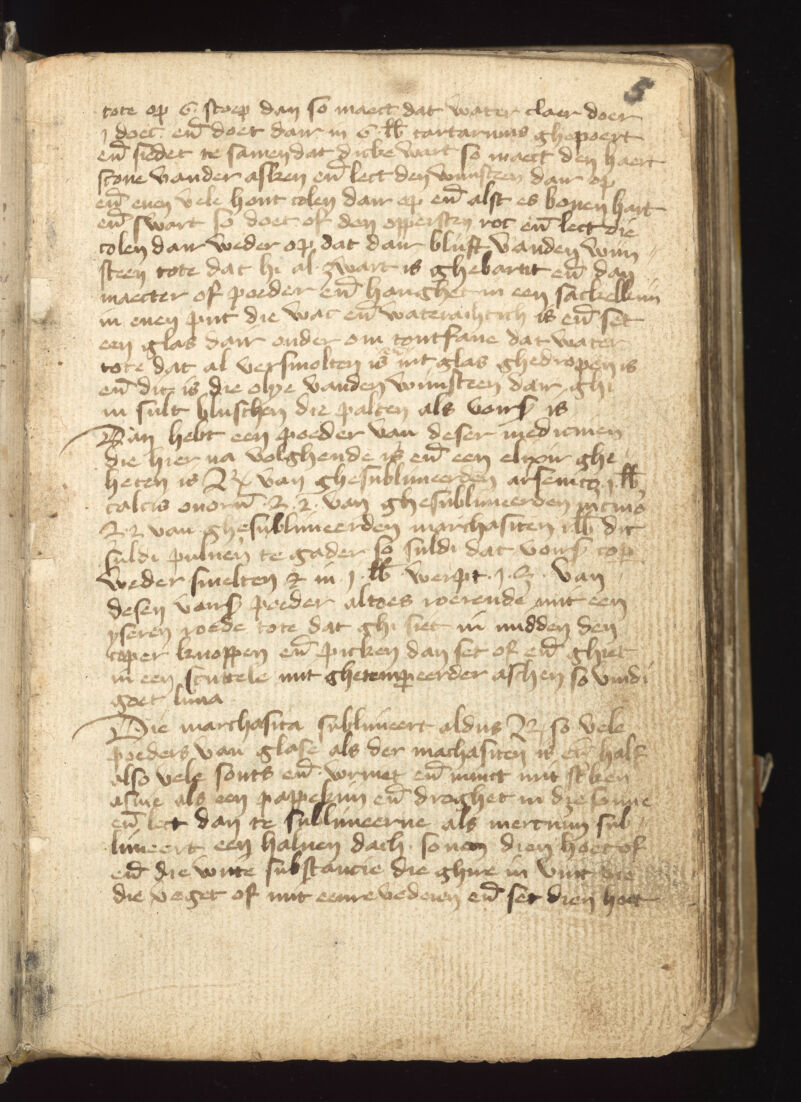 5
tote op 6 stoep dan so maect dat water claer doer
1 doec en̄ doet dair in 6 lb tartarums ghepoert
en̄ siedet te samen dat dicke wart so maect den haert
scone vander asken en̄ lect den wijnsteen dair op
en̄ enen vele hout colen dair op en̄ alst es boven hart
en̄ swart so doet of den oppersten roc en̄ lect die
colen dair weder op dat dair blijft vanden wijn
steen tote dat hi al zwart is ghebarnt en̄ dan
maecter of poeder en̄ hanghet in een sackellijn
in enen put die wac en̄ waterachtich is en̄ set
een glas dair onder om tontfane dat water
tote dat al versmolten is int glas ghedropen is
en̄ dit is die olye vanden wijnsteen dair ghi
in sult bluschen die palten als vors is
Dan hebt een poeder van deser medicinen
die hier na volghende is en̄ een elixir ghe
heten is Rx van ghesublimeerden arsenico 1 lb
calcis ovorum ℥ 2 van ghesublimeerden
℥ 2 van ghesublimeerden marchasiten lb dit
suldi pulven te gader so suldi dat vors cop
weder smelten in 1 lb werpt 1 ℥ van
desen vors poeder altoes roerende mit een
yseren roede tote dat ghi siet in midden den
coper knoppen en̄ picken dan set of en̄ ghiet
in een scuttele mit ghetempeerder asken so vindi
goet luna
Die marchasita sublimeert aldus Rx so vele
poeders van glase als der machasiten is en̄ half
also vele souts en̄ wrivet en̄ minct mit
asine als een pappekijn en̄ droghet in die sonne
en̄ lect dan te sublimeerne als mercurium sub
limeert een halven dach so nem dien hoet of
en̄ die witte substancie die ghire in vint die
die veget of mit eenre vederen en̄ set dien hoet